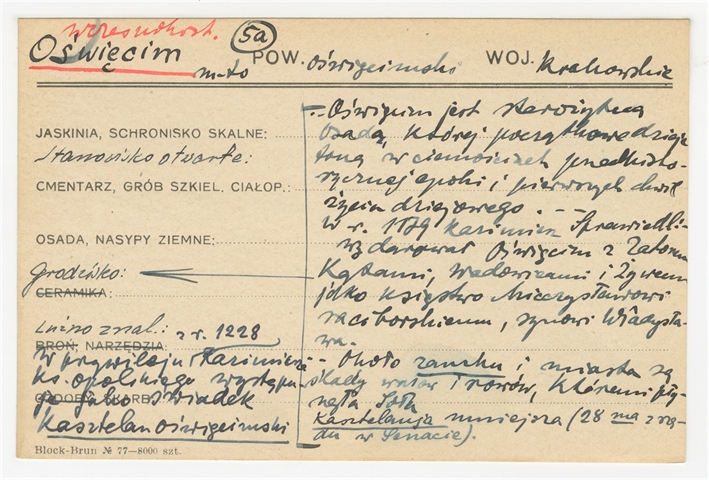 wczesnohist.
Oświęcim 5a
m-to POW. Oświęcimski WOJ. Krakowskie
JASKINIA, SCHRONISKO SKALNE:
Stanowisko otwarte:
CMENTARZ, GRÓB SZKIEL. CIAŁOP.:
OSADA, NASYPY ZIEMNE:
Grodzisko:
CERAMIKA:
Luźno znal.: z r. 1228
BROŃ, NARZĘDZIA:
W przywileju Kazimierza
ks. opolskiego występu-
je jako świadek
Kasztelan Oświęcimski
Block-Brun № 77—8000 szt.
- Oświęcim jest starożytną
osadą, której początkowe dzieje
toną w ciemnościach przedhisto-
rycznej epoki i pierwszych chwil
życia dziejowego. - -
W r. 1179 Kazimierz Sprawiedli-
wy darował Oświęcim z Zatorem
Kętami, Wadowicami i Żywcem
jako księstwo Mieczysławowi
raciborskiemu, synowi Władysła-
wa.
- Około zamku i miasta są
ślady wałów i rowów, któremi pły-
nęła Soła
Kasztelanja mniejsza (28 ma z rzę-
du w Senacie).